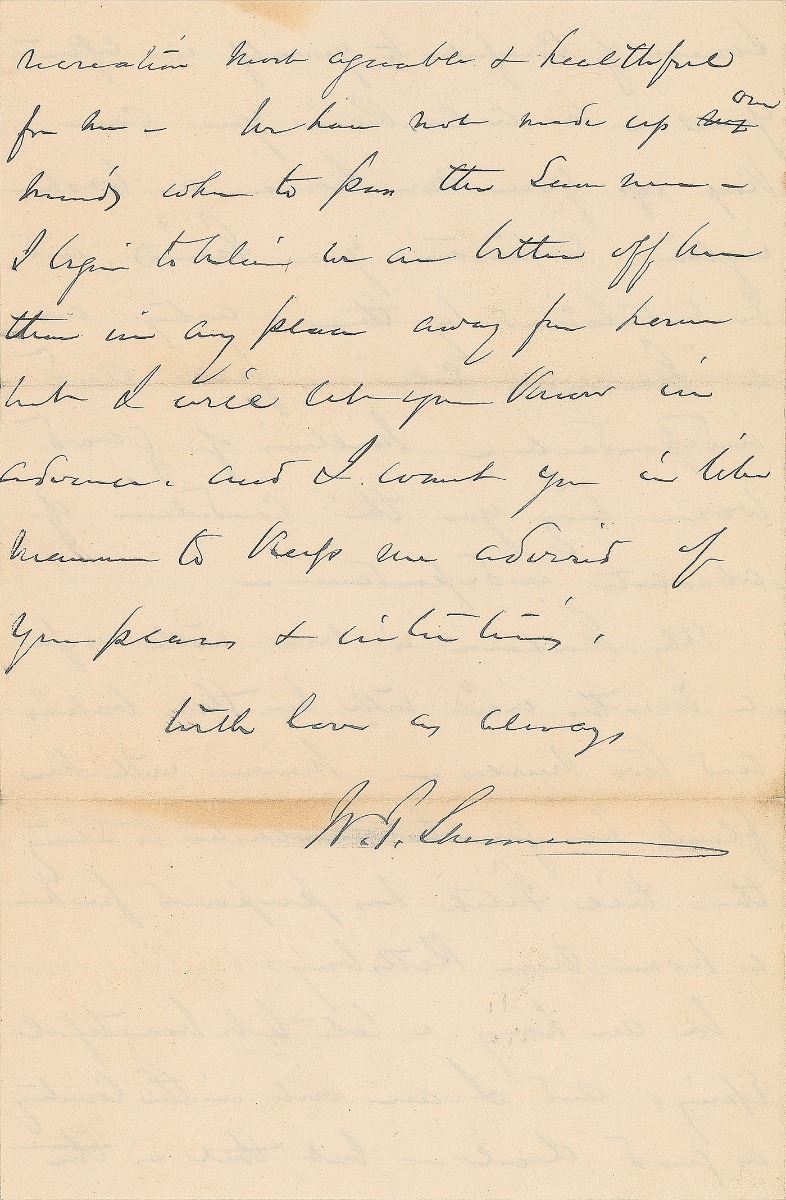 recreation most agreeable & healthful
for me - We have not made up my our
minds where to pass the Summer -
I begin to believe we are better off here
than in any place away from home
but I will let you know in
advance. and I want you in like
manner to keep me advised of
your plans & intentions.
With love as always
W. T. Sherman